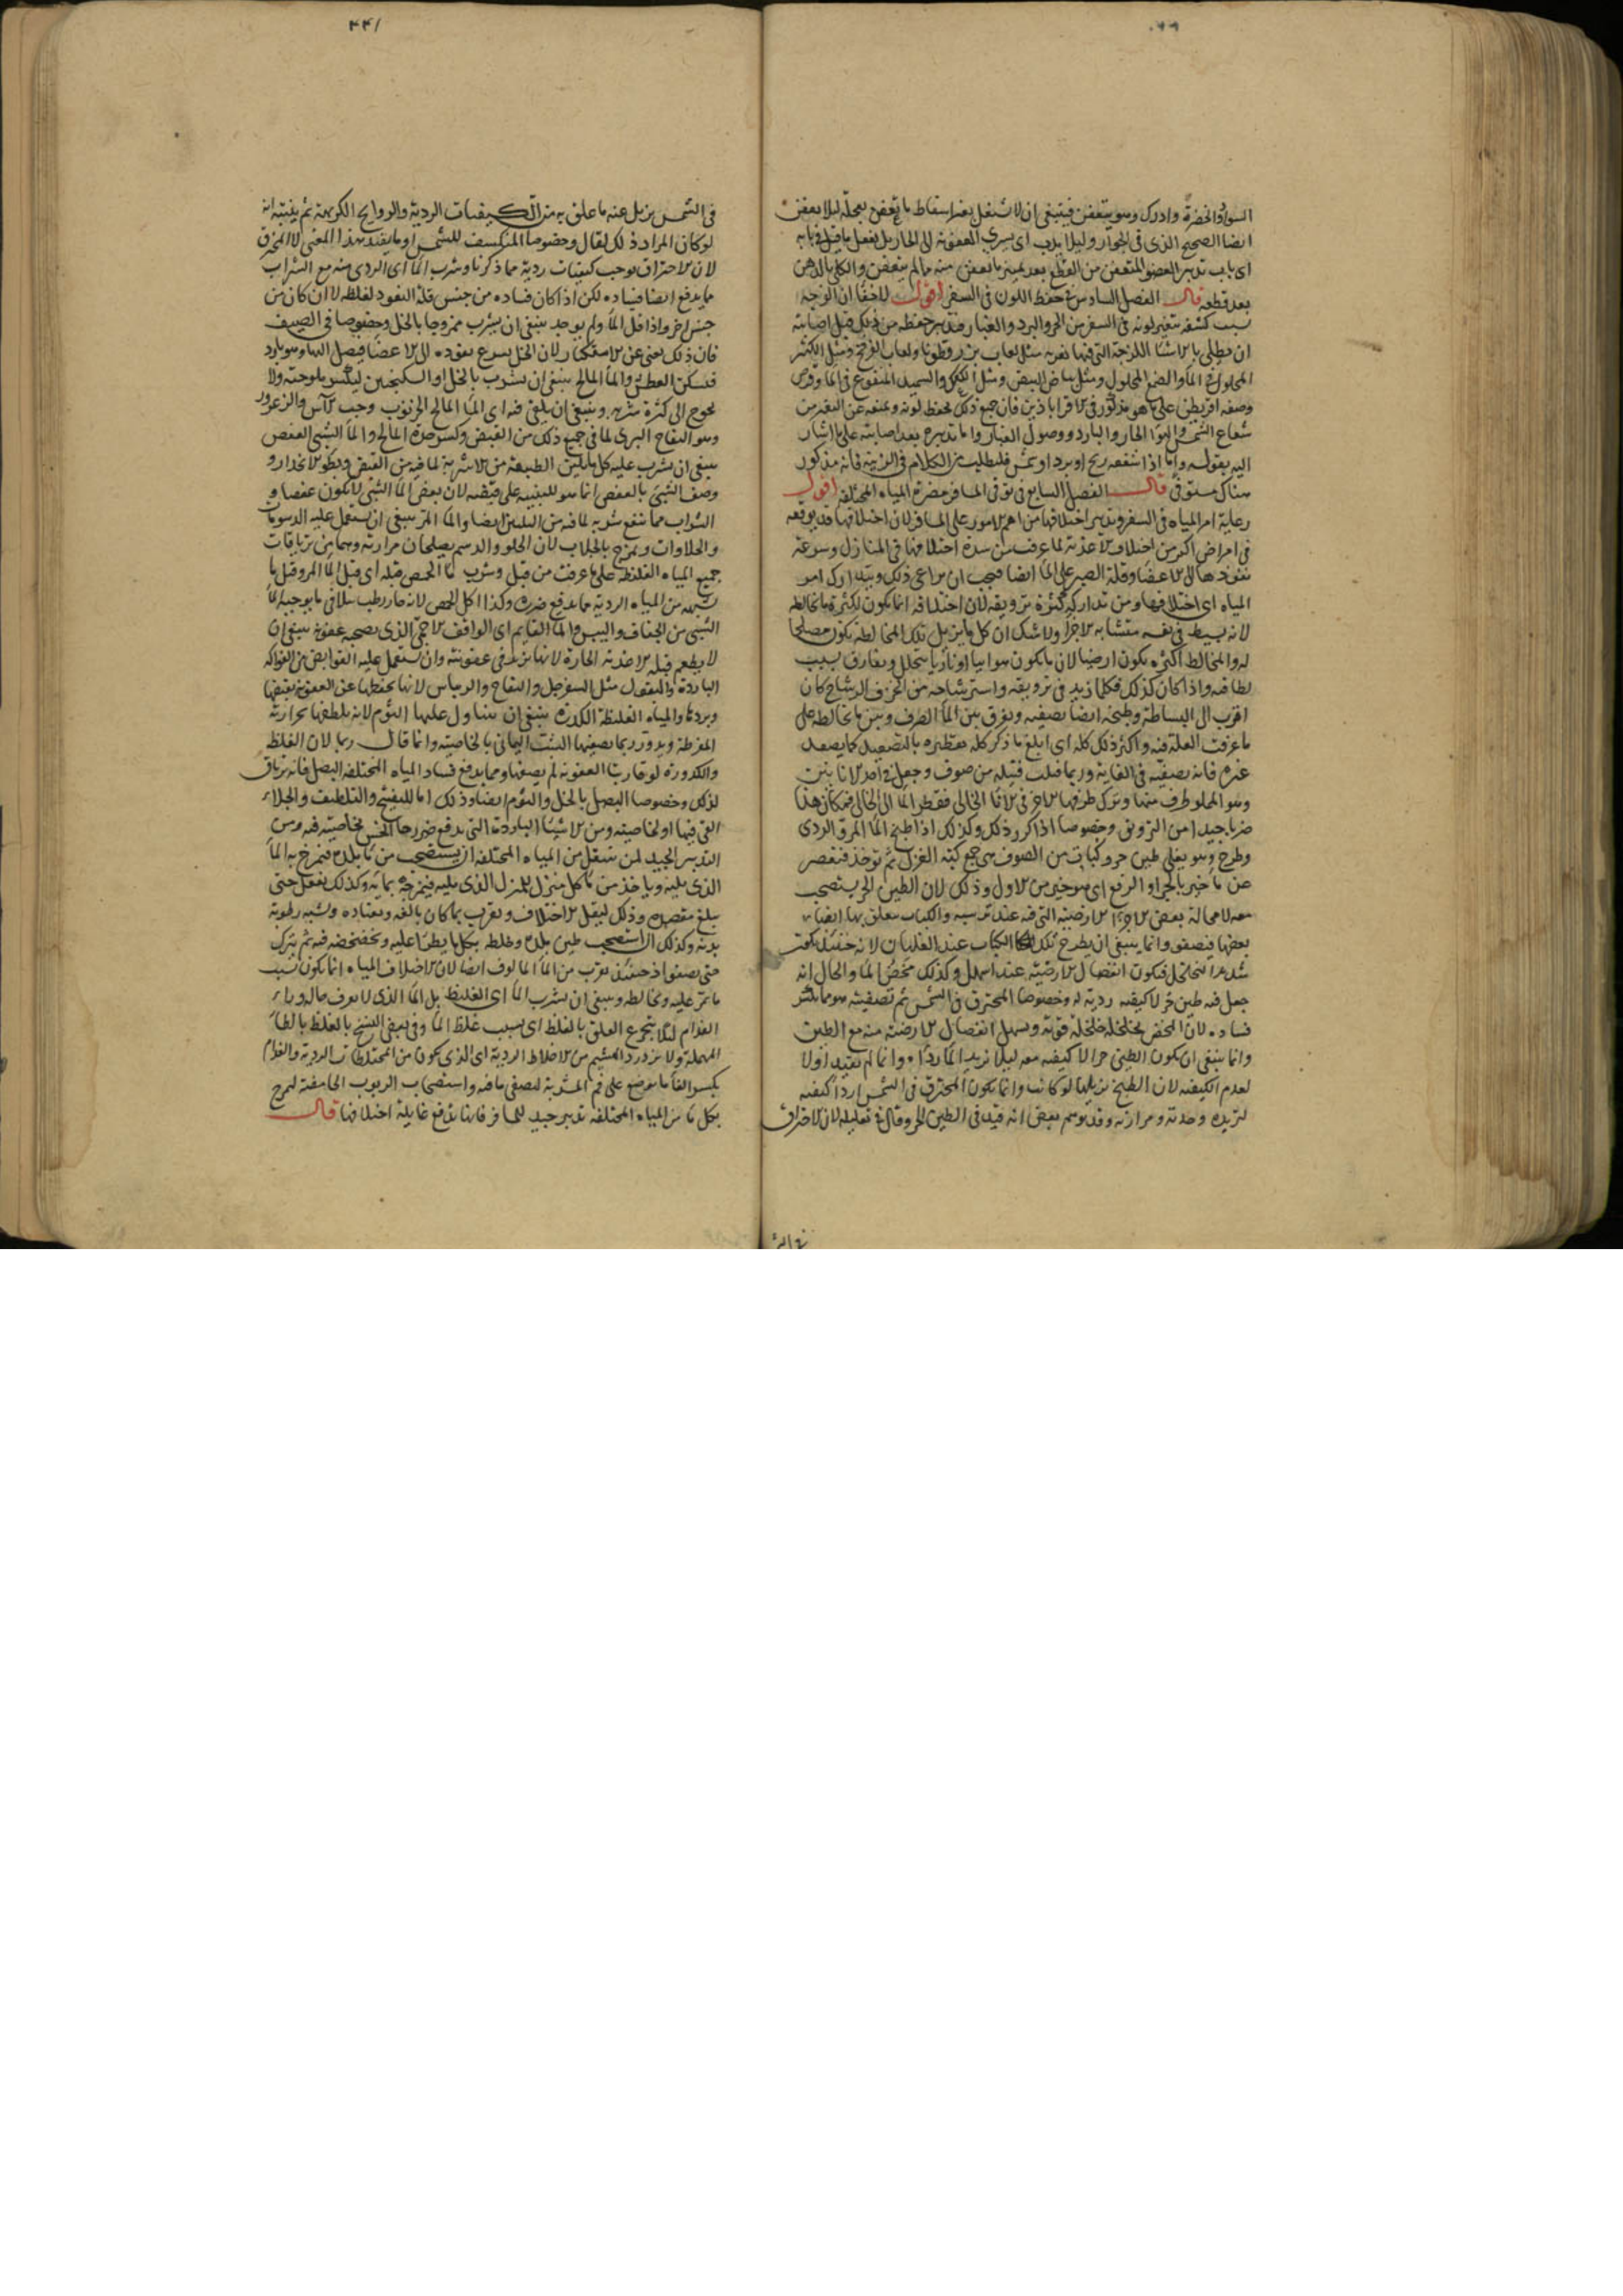 السواد والخضرة وادرك وهو يتعفن فينبغى ان لا يشتغل بغير اسقاط ما تعفن بعجلة ليلا يعفن
ايضا الصحيح الذى فى الجوار وليلا يدب اى يسرى العفونة الى الجار بل يفعل ما قيل فى بابه
اى باب تدبير العضو المتعفن من القطع بعد تمييز ما تعفن منه مما لم يتعفن والكى بالدهن
بعد قطعه قال الفصل السادس فى حفظ اللون فى السفر اقول لا خفا ان الوجه
بسبب كشفه يتغير لونه فى السفر من الحر والبرد والغبار فتدبير حفظه من ذلك قبل اصابته
ان يطلى بالاشيا اللزجة التى فيها تغرية مثل لعاب بزر قطونا ولعاب العرفج ومثل الكثيرا
المحلول فى الما والصمغ المحلول ومثل بياض البيض ومثل الكعك والسميد المنقوع فى الما وقرص
وصفه اقريطن على ما هو مذكور فى الاقراباذين فان جميع ذلك يحفظ لونه ويمنعه عن التغير من
شعاع الشمس والهوا الحار والبارد ووصول الغبار واما تدبيره بعد اصابته على ما اشار
اليه بقوله واما اذا شققه ريح او برد او شمس فليطلب من الكلام فى الزينة فانه مذكور
هناك مستوفى قال الفصل السابع فى توقى المسافر مضرة المياه المختلفة اقول
رعاية امر المياه فى السفر وتدبير اختلافها من اهم الامور على المسافر لان اختلافها قد يوقعه
فى امراض اكثر من اختلاف الاغذية لما عرفت من شدة اختلافها فى المنازل وسرعة
نفوذها الى الاعضا وقلة الصبر على الما ايضا فيجب ان يراعى ذلك ويتدارك امر
المياه اى اختلافها ومن تداركه كثرة ترويقه لان اختلافه انما يكون لكثرة ما يخالطه
لانه بسيط فى نفسه متشابه الاجزا ولا شك ان كل ما يزيل تلك المخالطة يكون مصلحا
له والمخالط اكثره يكون ارضيا لان ما يكون هوائيا او ناريا يتحلل ويفارق بسبب
لطافته واذا كان كذلك فكلما زيد فى ترويقه واسترشاحه من الخزف الرشاح كان
اقرب الى البساطة وطبخه ايضا يصفيه ويفرق بين الما الصرف وبين ما يخالطه على
ما عرفت العلة فيه واكثر ذلك كله اى ابلغ ما ذكر كله تقطيره بالتصعيد كما يصعد
غيره فانه يصفيه فى الغاية وربما فتلت فتيلة من صوف وجعل فى احد الانائين
وهو المملو طرف منها وترك طرفها الاخر فى الانا الخالى فقطر الما الى الخالى فكان هذا
ضربا جيدا من الترويق وخصوصا اذا كرر ذلك وكذلك اذا طبخ الما المر والردى
وطرح وهو يغلى طين حر وكباب من الصوف هى جمع كبة الغزل ثم توخذ فتعصر
عن ما خير بالجر او الرفع اى هو خير من الاول وذلك لان الطين الحر يستصحب
معه لا محالة بعض الاجزا الارضية التى فيه عند ترسبه والكباب يتعلق بها ايضا
بعضها فيصفو وانما ينبغى ان يطرح تلك الكباب عند الغليان لانه حينئذ يكون
شديد التخلخل فيكون انفصال الارضية عنه اسهل وكذلك مخض الما والحال انه
جعل فيه طين حر لا كيفية ردية له وخصوصا المحترق فى الشمس ثم تصفيته هو مما يكسر
فساده لان المخض يخلخله خلخلة قوية ويسهل انفصال الارضية منه مع الطين
وانما ينبغى ان يكون الطين حرا لا كيفية معه ليلا يزيد الما رداءة وانما لم يقيد اولا
لعدم الكيفية لان الطبخ يزيلها لو كانت وانما يكون المحترق فى الشمس اردا كيفية
لتزيده وحدته ومرارته وقد توهم بعض انه قيد فى الطين الحر وقال فى تعليله لان الاحتراق
فى الشمس يزيل عنه ما علق به من الكيفيات الردية والروايح الكريهة ثم
لو كان المراد ذلك لقال وخصوصا المنكسف للشمس او ما يفيد هذا المعنى لا المحترق
لان الاحتراق يوجب كيفيات ردية مما ذكرنا وشرب الما اى الردى منه مع الشراب
مما يدفع ايضا فساده لكن اذا كان فساده من جنس قلة النفود لغلظه لا ان كان من
جنس اخر واذا قل الما ولم يوجد ينبغى ان يشرب ممزوجا بالخل وخصوصا فى الصيف
فان ذلك يغنى عن الاستكثار لان الخل يسرع نفوذه الى الاعضا فيصل اليها وهو بارد
فيسكن العطش والما المالح ينبغى ان يشرب بالخل او السكنجبين ليكسر ملوحته ولا
يحوج الى كثرة شربه وينبغى ان يلقى فيه اى الما المالح الخرنوب وحب الآس والزعرور
وهو التفاح البرى لما فى جميع ذلك من القبض وكسر حدة المالح والما الشبى العفص
ينبغى ان يشرب عليه كل ما يلين الطبيعة من الاشربة لما فيه من القبض وبطو الانحدار و
وصف الشبى بالعفص انما هو للتنبيه على قبضه لان بعض الما الشبى لا يكون عفصا و
الشراب مما ينفع شربه لما فيه من التليين ايضا والما المر ينبغى ان يستعمل عليه الدسومات
والحلاوات ويمزج بالجلاب لان الحلو والدسم يصلحان مرارته وهما من ترياقات
جميع المياه الغليظة على ما عرفت من قبل وشرب ما الحمص قبله اى قبل الما المر وقبل ما
يشبهه من المياه الردية مما يدفع ضرره وكذا اكل الحمص لانه حار رطب يتلافى ما يوجبه الما
الشبى من الجفاف واليبس والما القايم اى الواقف الآجمى الذى يصحبه عفونة ينبغى ان
لا يطعم قبله الاغذية الحارة لانها تزيد فى عفونته وان يستعمل عليه القوابض من الفواكه
الباردة والبقول مثل السفرجل والتفاح والريباس لانها يحفظها عن العفونة بقبضها
وبردها والمياه الغليظة الكدرة ينبغى ان يتناول عليها الثوم لانه يلطفها بحرارته
المفرطة ويروق ربما يصفيها الشب اليمانى بالخاصية وانما قال ربما لان الغلظ
والكدورة لو قاربا العفونة لم يصفها ومما يدفع فساد المياه المختلفة البصل فانه ترياق
لذلك وخصوصا البصل بالخل والثوم ايضا وذلك اما للتفتيح والتلطيف والجلاء
التى فيها او لخاصيته ومن الاشيا الباردة التى يدفع ضررها الخس بخاصيته فيه ومن
التدبير الجيد لمن ينتقل من المياه المختلفة ان يستصحب من ما بلده فيمزج به الما
الذى يليه وياخذ من ما كل منزل للمنزل الذى يليه فيمزجه بمائه وكذلك يفعل حتى
يبلغ مقصده وذلك ليقل الاختلاف ويقرب بما كان يالفه ويعتاده ويشبه رطوبة
بدنه وكذلك ان استصحب طين بلده وخلطه بكل ما يطرا عليه وخضخضه فيه ثم يترك
حتى يصفو اذ حينئذ يقرب من الما المالوف ايضا لان الاختلاف المياه انما يكون بسبب
ما تمر عليه وتخالطه وينبغى ان يشرب الما اى الغليظ بل الما الذى لا يعرف حاله وراء
الفدام لئلا يتجرع العلق بالغلط اى بسبب غلظ الما وفى بعض النسخ بالغلط بالطاء
المهملة ولا يزدرد الهشيم من الاخلاط الردية اى الذى يكون من المختلطات الردية والفدام
بكسر الفا ما يوضع على فم المشربة ليصفى ما فيه واستصحاب الربوب الحامضة لتمزج
بكل ما من المياه المختلفة تدبير جيد للمسافر فانها تدفع غايلة اختلافها قال